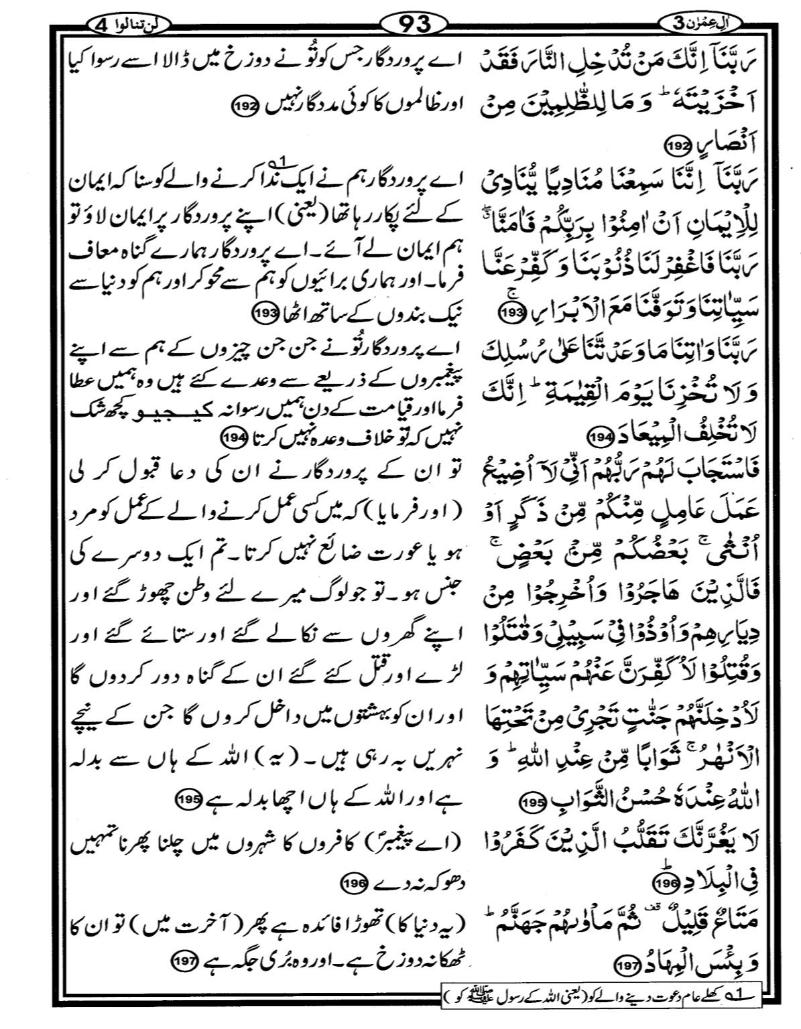 اٰل عِمْرٰن 3
93
لن تنالوا 4
رَبَّنَاۤ اِنَّكَ مَنْ تُدْخِلِ النَّارَ فَقَدْ
اَخْزَيْتَهٗ ؕ وَ مَا لِلظّٰلِمِيْنَ مِنْ
اَنْصَارٍ 192
رَبَّنَاۤ اِنَّنَا سَمِعْنَا مُنَادِيًا يُّنَادِىْ
لِلْاِيْمَانِ اَنْ اٰمِنُوْا بِرَبِّكُمْ فَاٰمَنَّا ۖۗ
رَبَّنَا فَاغْفِرْ لَنَا ذُنُوْبَنَا وَ كَفِّرْ عَنَّا
سَيِّاٰتِنَا وَ تَوَفَّنَا مَعَ الْاَبْرَارِ ۚ 193
رَبَّنَا وَ اٰتِنَا مَا وَعَدْتَّنَا عَلٰى رُسُلِكَ
وَ لَا تُخْزِنَا يَوْمَ الْقِيٰمَةِ ؕ اِنَّكَ
لَا تُخْلِفُ الْمِيْعَادَ 194
فَاسْتَجَابَ لَهُمْ رَبُّهُمْ اَنِّىْ لَاۤ اُضِيْعُ
عَمَلَ عَامِلٍ مِّنْكُمْ مِّنْ ذَكَرٍ اَوْ
اُنْثٰى ۚ بَعْضُكُمْ مِّنْۢ بَعْضٍ ۚ
فَالَّذِيْنَ هَاجَرُوْا وَ اُخْرِجُوْا مِنْ
دِيَارِهِمْ وَ اُوْذُوْا فِىْ سَبِيْلِىْ وَ قٰتَلُوْا
وَ قُتِلُوْا لَاُكَفِّرَنَّ عَنْهُمْ سَيِّاٰتِهِمْ وَ
لَاُدْخِلَنَّهُمْ جَنّٰتٍ تَجْرِىْ مِنْ تَحْتِهَا
الْاَنْهٰرُ ۚ ثَوَابًا مِّنْ عِنْدِ اللّٰهِ ؕ وَ
اللّٰهُ عِنْدَهٗ حُسْنُ الثَّوَابِ 195
لَا يَغُرَّنَّكَ تَقَلُّبُ الَّذِيْنَ كَفَرُوْا
فِى الْبِلَادِ ؕ 196
مَتَاعٌ قَلِيْلٌ ۟ ثُمَّ مَاْوٰىهُمْ جَهَنَّمُ ؕ
وَ بِئْسَ الْمِهَادُ 197
اے پروردگار جس کو تُو نے دوزخ میں ڈالا اسے رسوا کیا
اور ظالموں کا کوئی مددگار نہیں 192
اے پروردگار ہم نے ایک ندا 1؎ کرنے والے کو سنا کہ ایمان
کے لئے پکار رہا تھا (یعنی) اپنے پروردگار پر ایمان لاؤ تو
ہم ایمان لے آئے۔ اے پروردگار ہمارے گناہ معاف
فرما۔ اور ہماری برائیوں کو ہم سے محو کر اور ہم کو دنیا سے
نیک بندوں کے ساتھ اٹھا 193
اے پروردگار تُو نے جن جن چیزوں کے ہم سے اپنے
پیغمبروں کے ذریعے سے وعدے کئے ہیں وہ ہمیں عطا
فرما اور قیامت کے دن ہمیں رسوا نہ کیجیو کچھ شک
نہیں کہ تو خلاف وعدہ نہیں کرتا 194
تو ان کے پروردگار نے ان کی دعا قبول کر لی
(اور فرمایا) کہ میں کسی عمل کرنے والے کے عمل کو مرد
ہو یا عورت ضائع نہیں کرتا۔ تم ایک دوسرے کی
جنس ہو۔ تو جو لوگ میرے لئے وطن چھوڑ گئے اور
اپنے گھروں سے نکالے گئے اور ستائے گئے اور
لڑے اور قتل کئے گئے ان کے گناہ دور کر دوں گا
اور ان کو بہشتوں میں داخل کروں گا جن کے نیچے
نہریں بہ رہی ہیں۔ (یہ) اللہ کے ہاں سے بدلہ
ہے اور اللہ کے ہاں اچھا بدلہ ہے 195
(اے پیغمبرؐ) کافروں کا شہروں میں چلنا پھرنا تمہیں
دھوکہ نہ دے 196
(یہ دنیا کا) تھوڑا فائدہ ہے پھر (آخرت میں) تو ان کا
ٹھکانہ دوزخ ہے۔ اور وہ بُری جگہ ہے 197
1؎ کھلے عام دعوت دینے والے کو (یعنی اللہ کے رسول ﷺ کو)